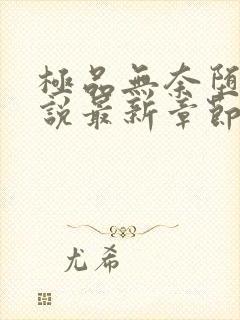 極品無奈墮
說最新章節
尤希